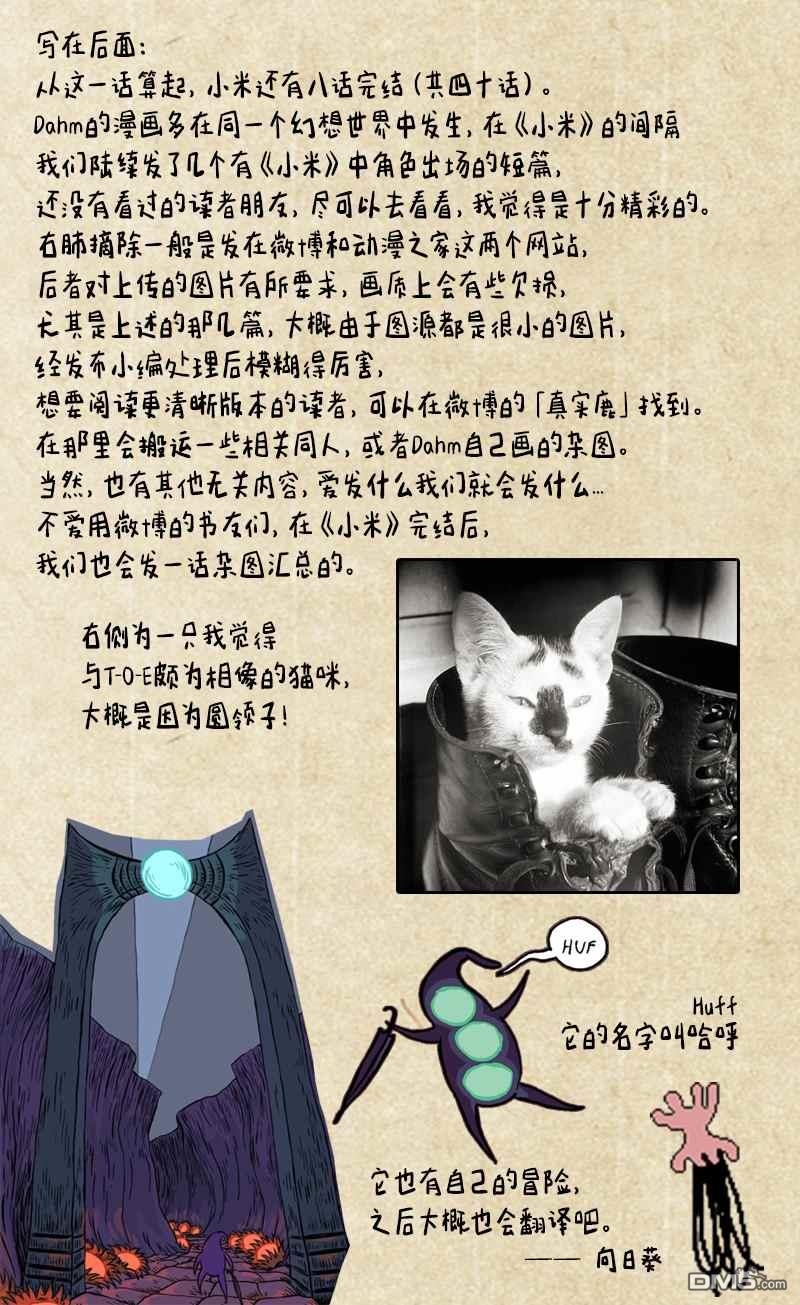 写在后面:
从这一话算起, 小米还有八话完结(共四十话)。
Dahm的漫画多在同一个幻想世界中发生, 在《小米》的间隔
我们陆续发了几个有《小米》中角色出场的短篇,
还没有看过的读者朋友, 尽可以去看看, 我觉得是十分精彩的。
右肺摘除一般是发在微博和动漫之家这两个网站,
后者对上传的图片有所要求, 画质上会有些欠损,
尤其是上述的那几篇, 大概由于图源都是很小的图片,
经发布小编处理后模糊得厉害,
想要阅读更清晰版本的读者, 可以在微博的「真实鹿」找到。
在那里会搬运一些相关同人, 或者Dahm自己画的杂图。
当然, 也有其他无关内容, 爱发什么我们就会发什么...
不爱用微博的书友们, 在《小米》完结后,
我们也会发一话杂图汇总的。
右侧为一只我觉得
与T-O-E颇为相像的猫咪,
大概是因为圆领子!
HUF
Huff
它的名字叫哈呼
它也有自己的冒险,
之后大概也会翻译吧。
—— 向日葵
DM5.com